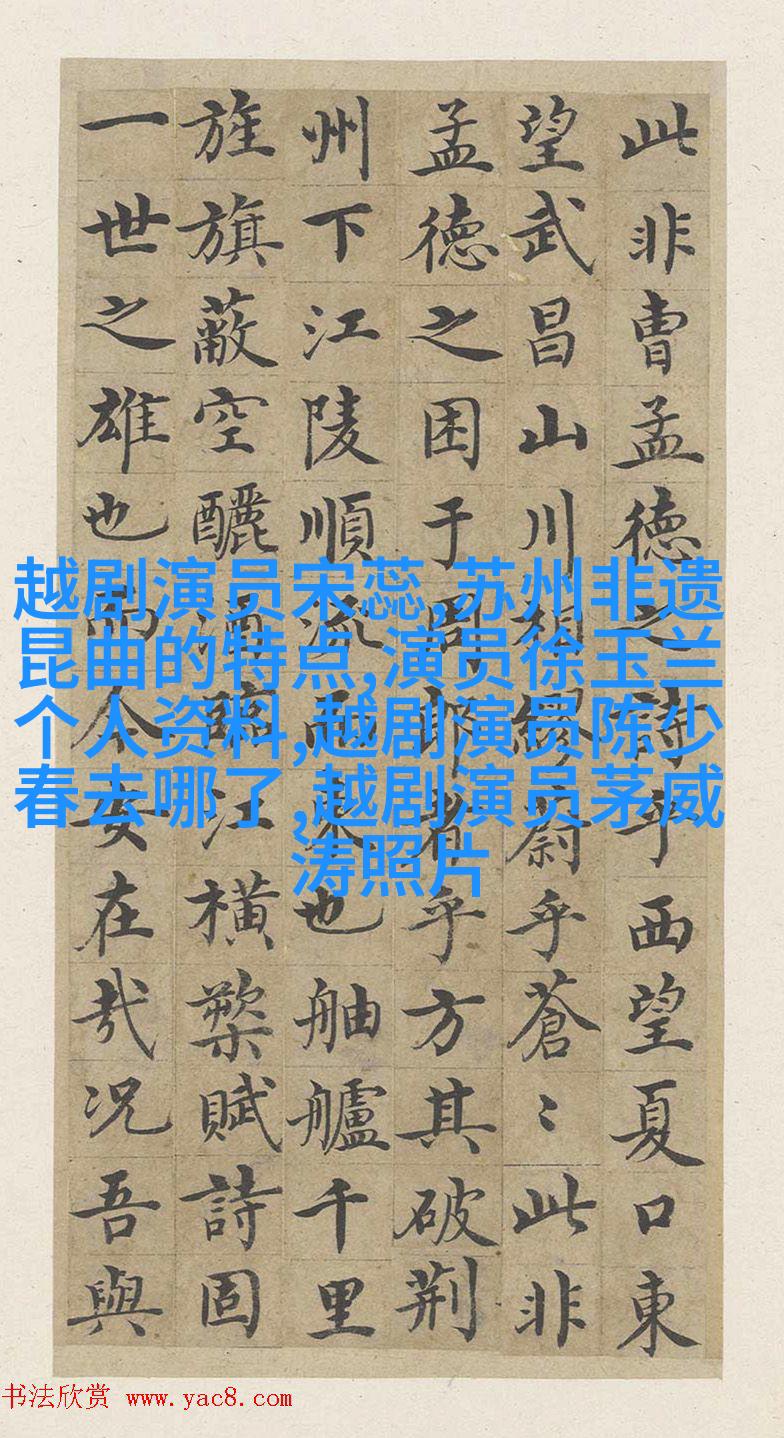 此非曹孟德之詩乎西望夏口東
望武昌山川相繆蔚乎蒼〻此非
孟德之困于周郎者乎方其破荊
州下江陵順流而東也舳艫千里
旌旗蔽空釃酒臨江橫槊賦詩固
一世之雄也而今安在哉况吾與
越剧演员宋蕊,苏州非遗
昆曲的特点,演员徐玉兰
个人资料,越剧演员陈少
春去哪了,越剧演员茅威
涛照片
书法欣赏 www.yac8.com